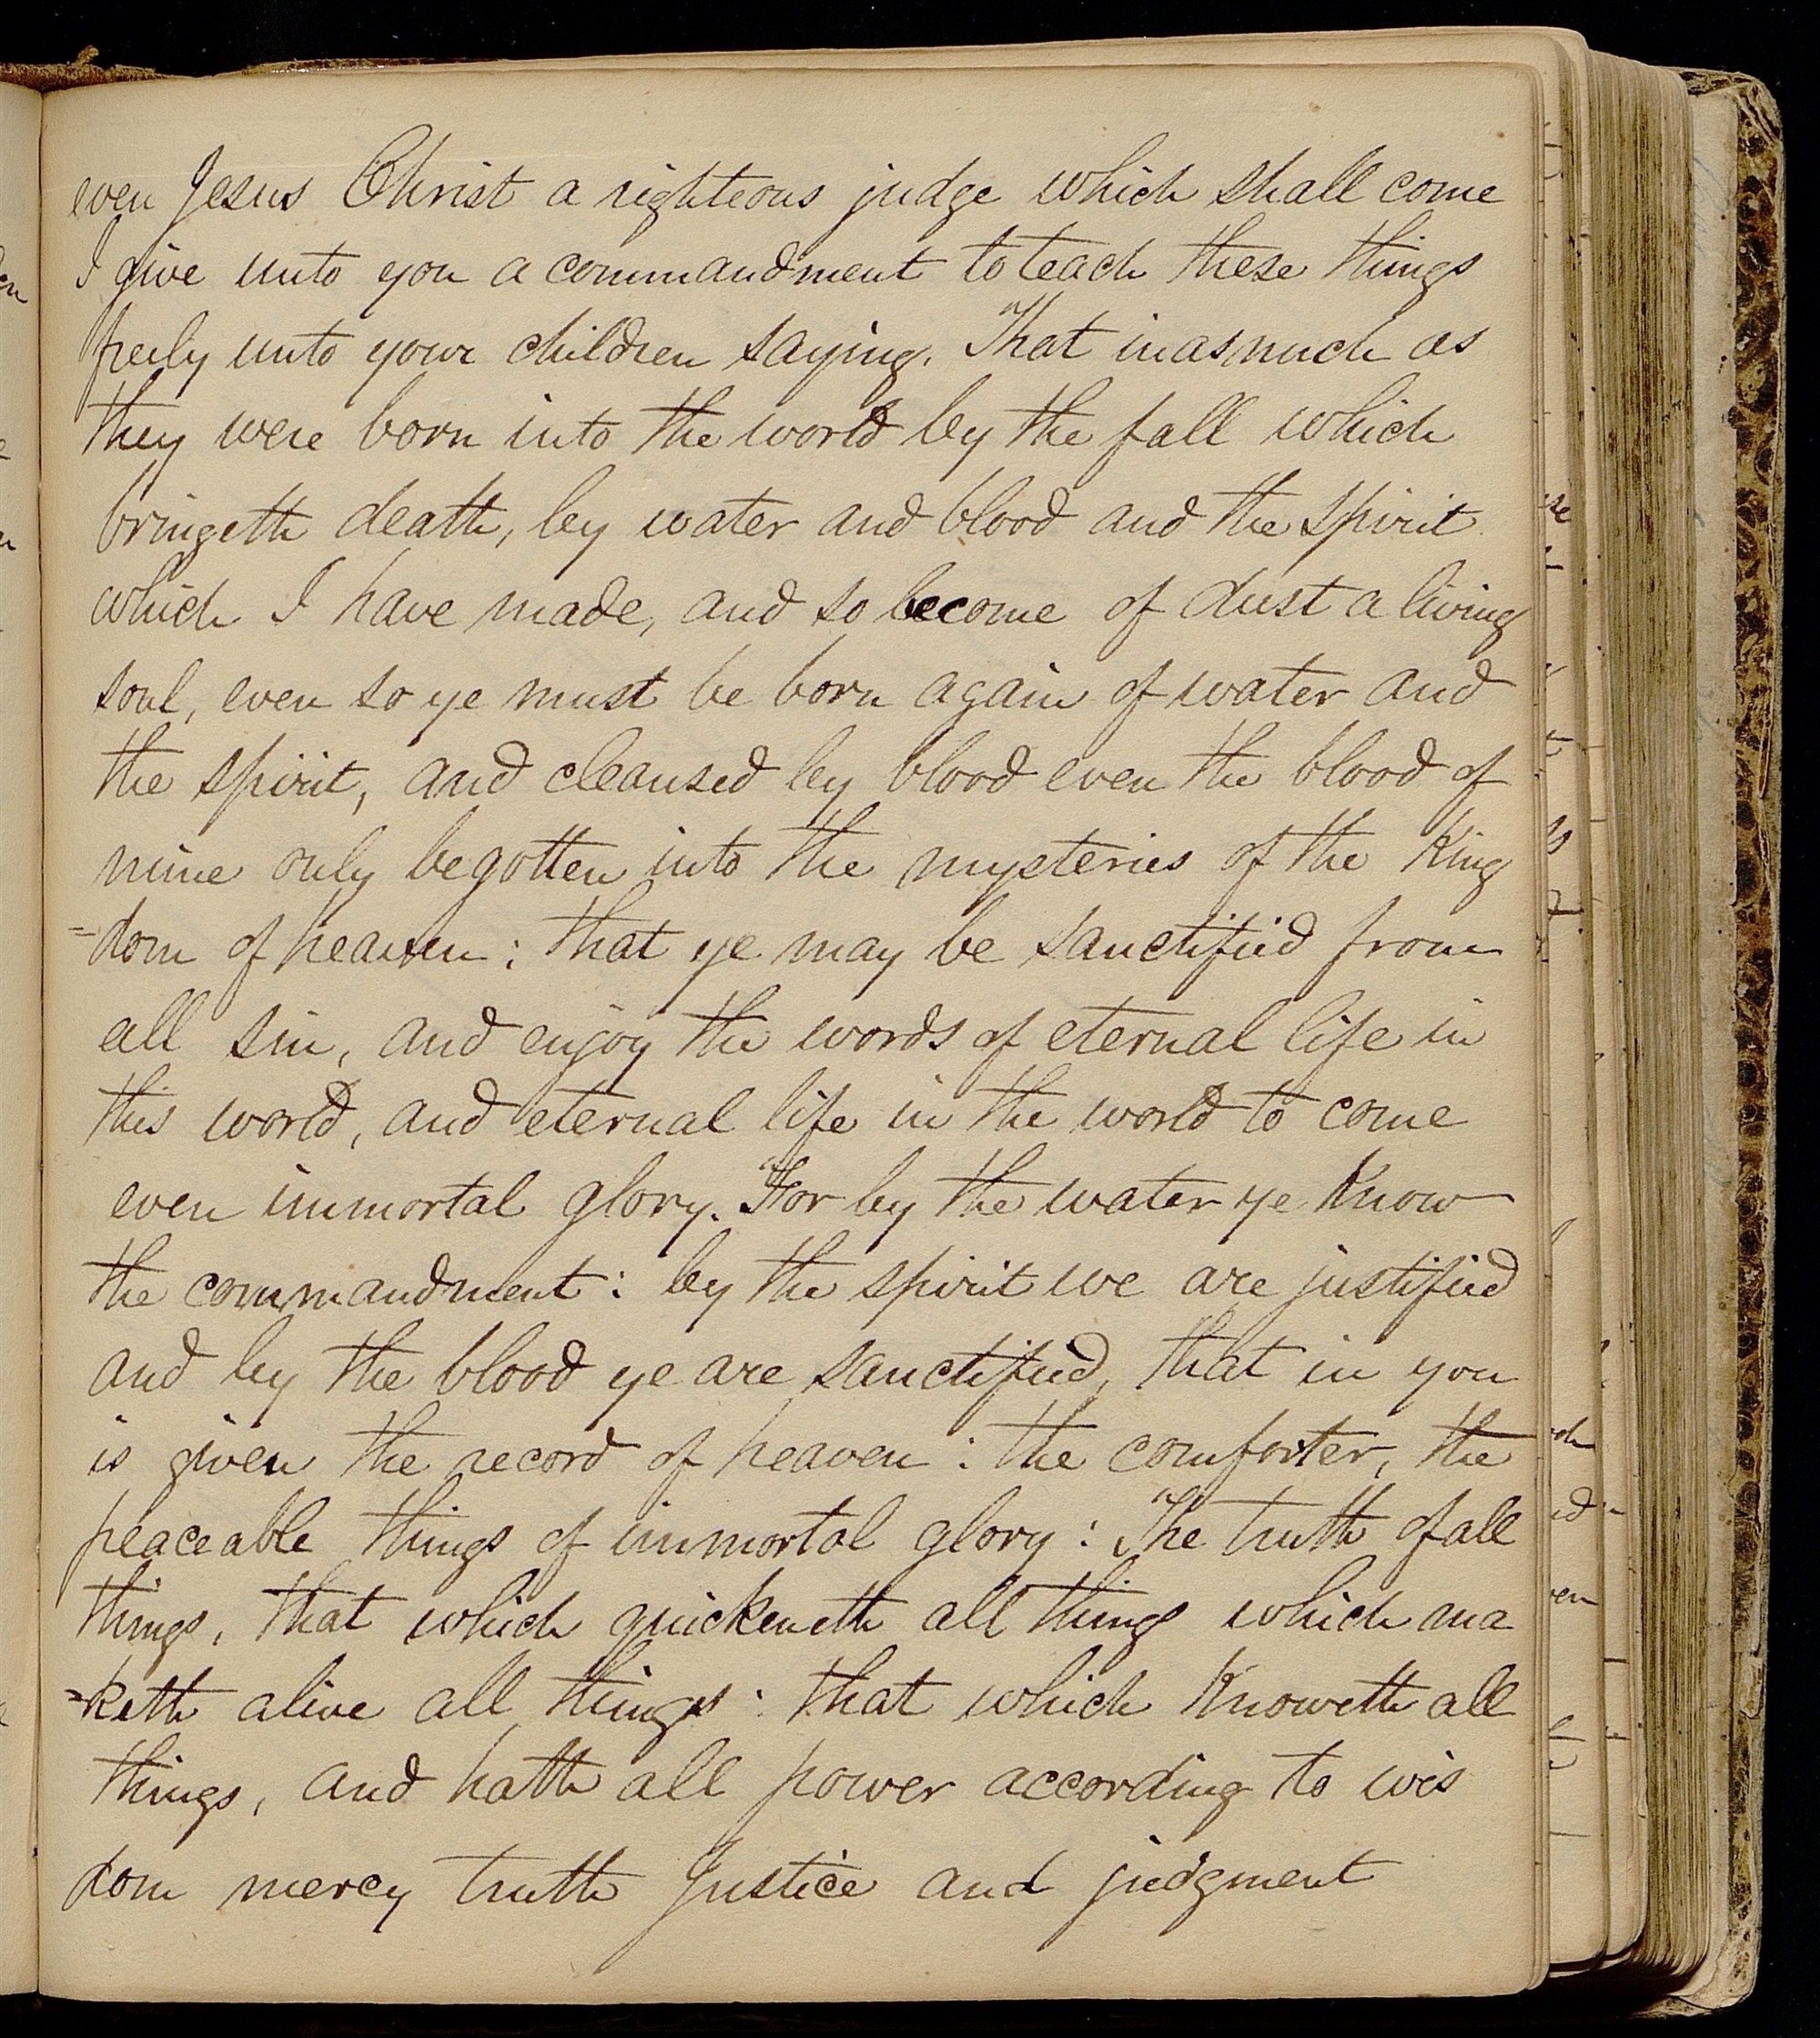 even Jesus Christ a righteous judge which shall come
I give unto you a commandment to teach these things
freely unto your children saying. That inasmuch as
they were born into the world by the fall which
bringeth death, by water and blood and the spirit
which I have made, and so become of dust a living
soul, even so ye must be born again of water and
the spirit, and cleansed by blood even the blood of
mine only begotten into the mysteries of the King
=dom of heaven; that ye may be sanctified from
all sin, and enjoy the words of eternal life in
this world, and eternal life in the world to come
even immortal glory. For by the water ye Know
the commandment: by the spirit we are justified
and by the blood ye are sanctified, that in you
is given the record of heaven: the comforter, the
peaceable things of immortal glory: The truth of all
things, that which quickeneth all things which ma
=keth alive all things: that which Knoweth all
things, and hath all power according to wis
dom mercy truth Justice and judgment